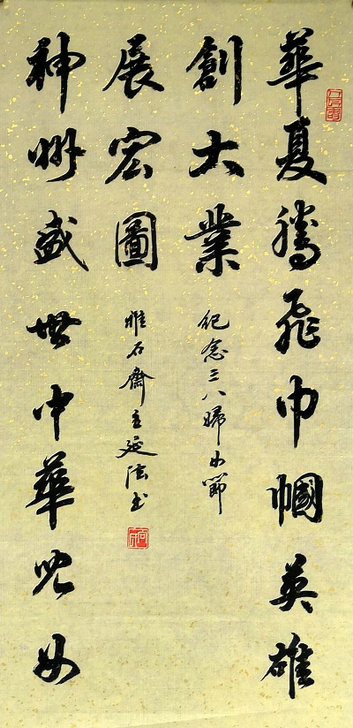 華夏騰飛巾幗英雄
創大業
紀念三八婦女節
神州盛世中華兒女
展宏圖
惟石齋主延法书